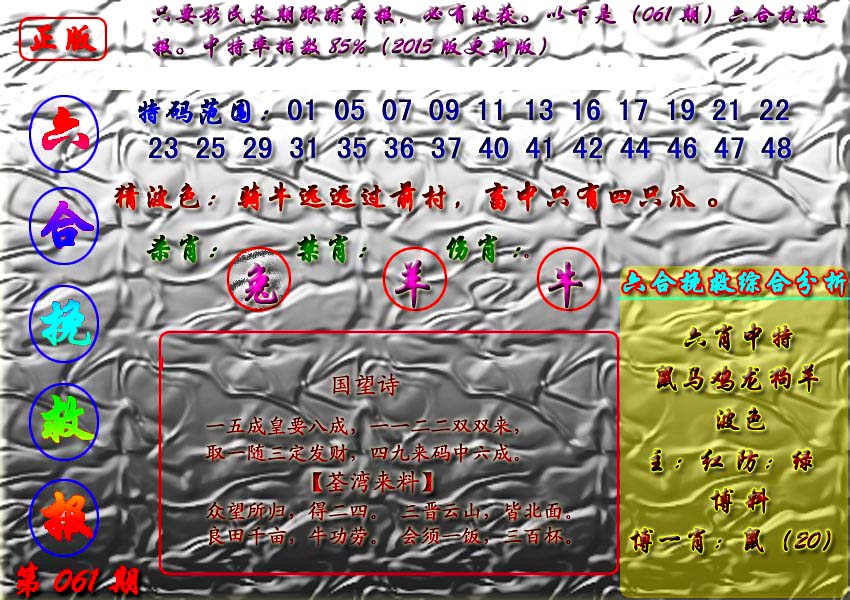 正版
只要彩民长期跟踪本报，必有收获。以下是（061期）六合挽救
报。中特率指数85%（2015版更新版）
六合挽救报
第061期
特码范围：01 05 07 09 11 13 16 17 19 21 22
23 25 29 31 35 36 37 40 41 42 44 46 47 48
猜波色：骑牛远远过前村，畜中只有四只爪。
杀肖：兔 禁肖：羊 伤肖：牛
国望诗
一五成皇要八成，一一二二双双来，
取一随三定发财，四九来码中六成。
【荃湾来料】
众望所归，得二四。 三晋云山，皆北面。
良田千亩，牛功劳。 会须一饭，三百杯。
六合挽救综合分析
六肖中特
鼠马鸡龙狗羊
波色
主：红防：绿
博料
博一肖：鼠（20）